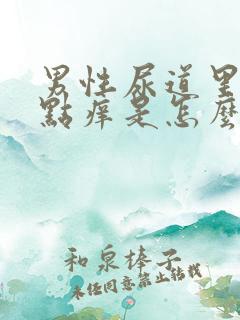 男性尿道里
點痒是怎麼
和泉榛子
未經同意禁止转载